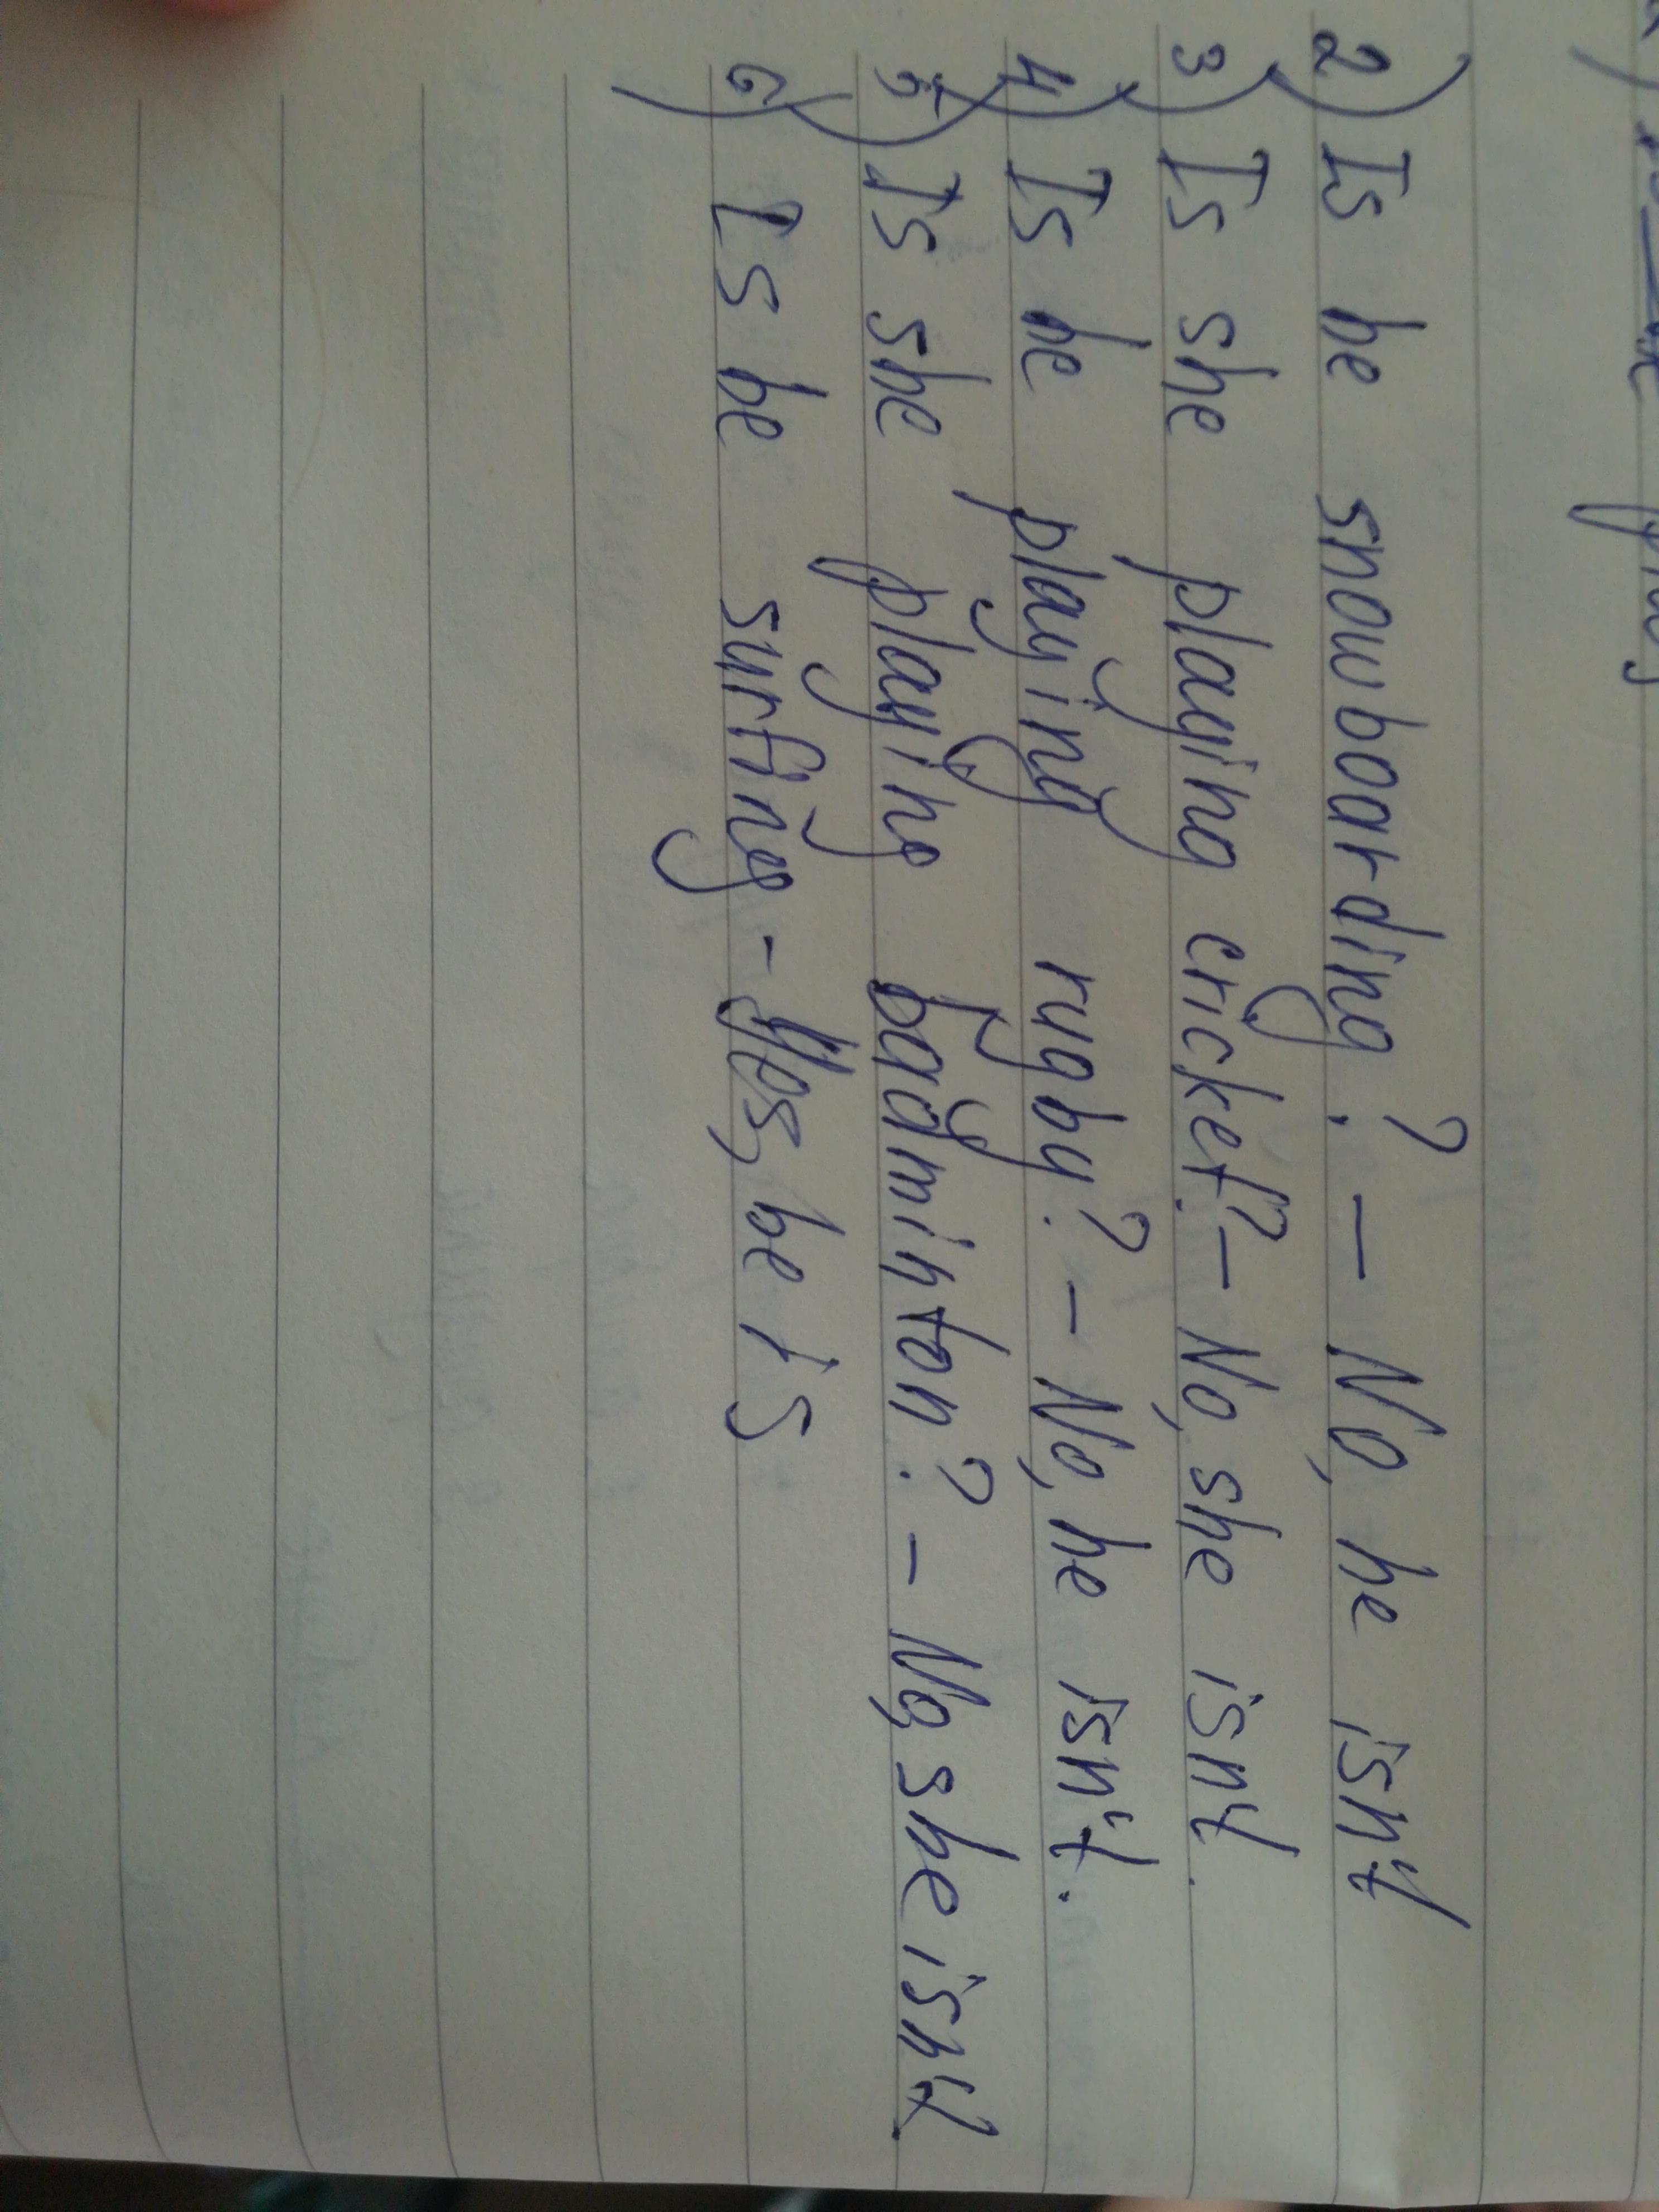 2) Is he snowboarding? – No, he isn't
3) Is she playing cricket? – No, she isn't.
4) Is he playing rugby? – No, he isn't.
5) Is she playing badminton? – No, she isn't.
6) Is he surfing – Yes, he is